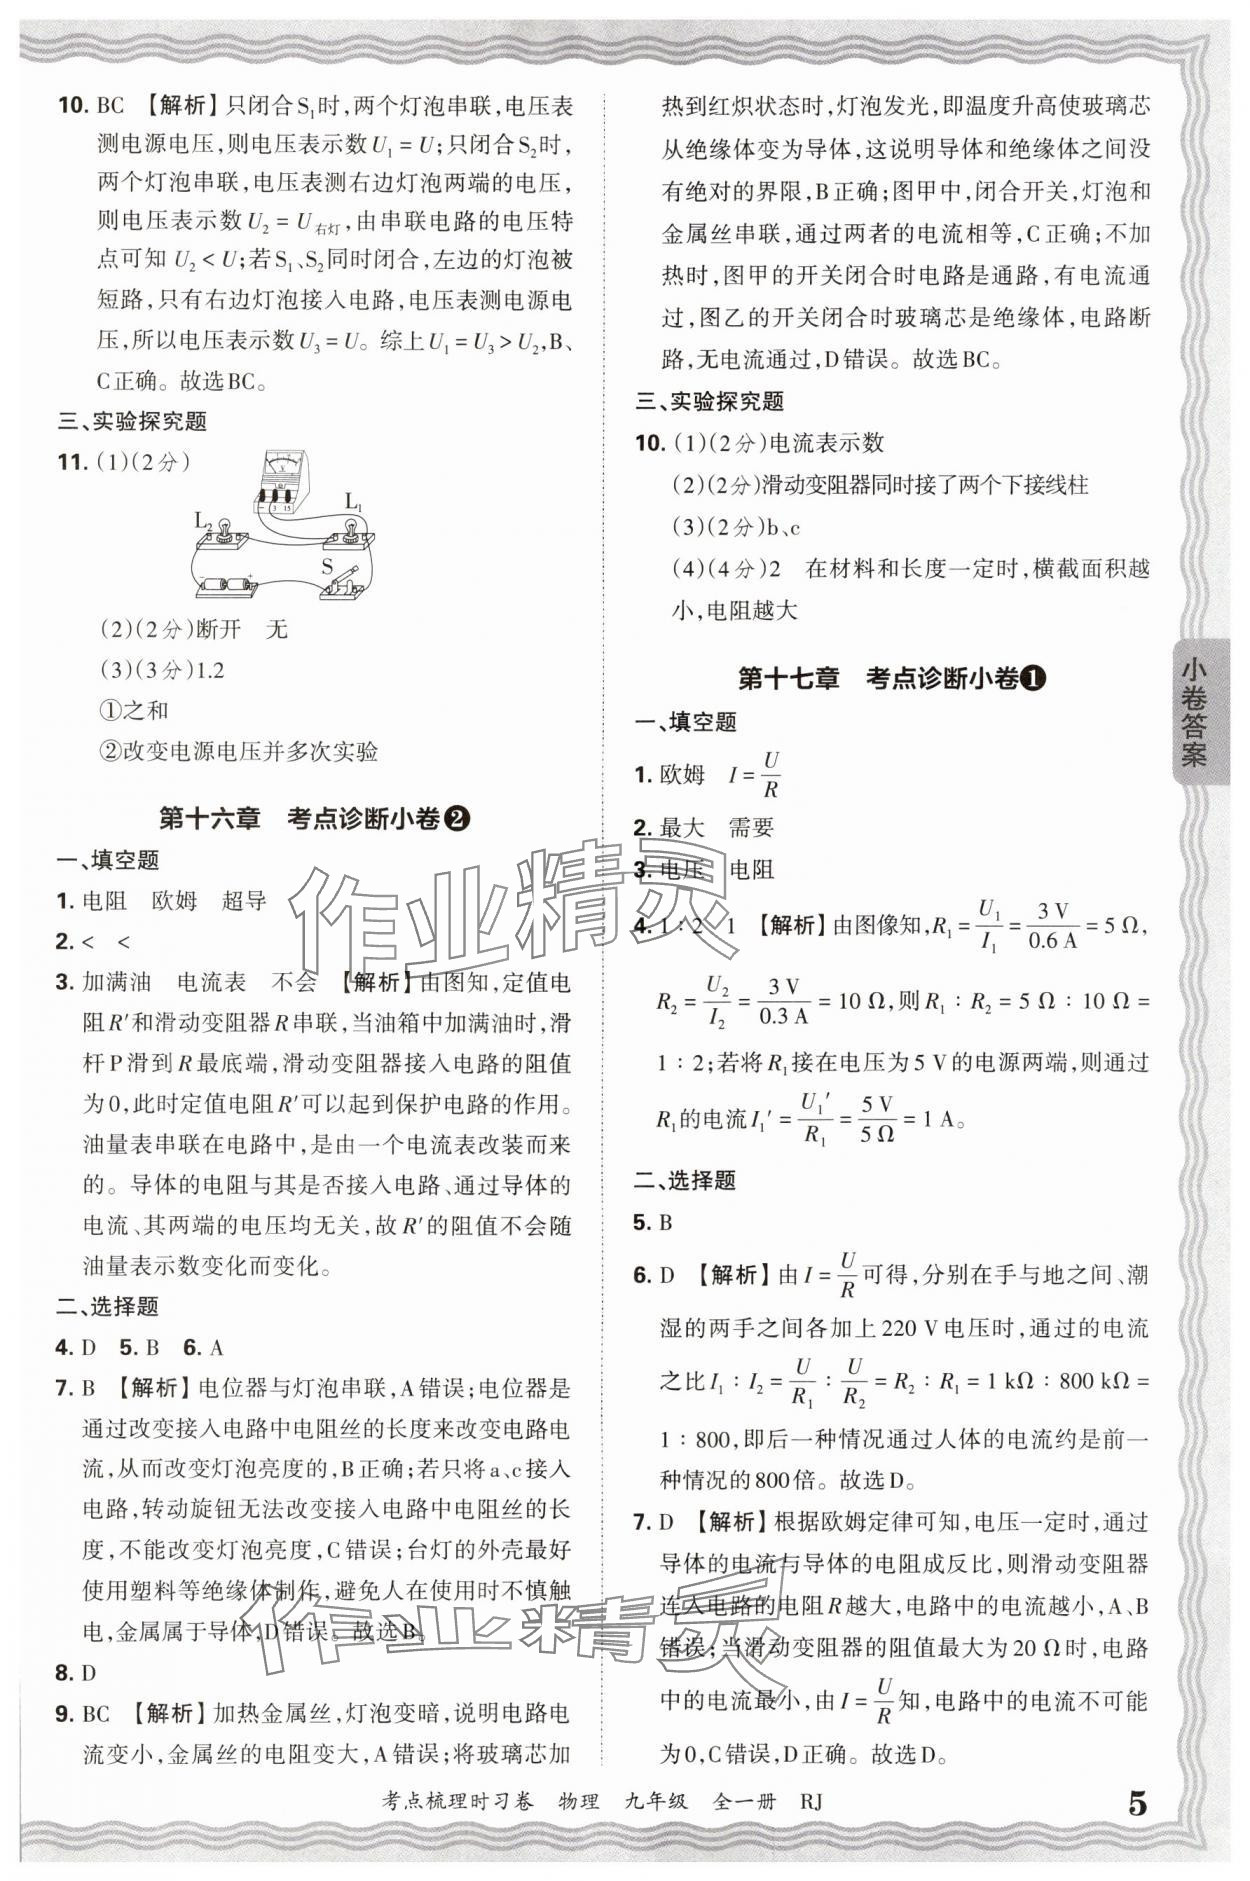 10. BC 【解析】只闭合S₁时,两个灯泡串联,电压表
测电源电压,则电压表示数U₁=U;只闭合S₂时,
两个灯泡串联,电压表测右边灯泡两端的电压,
则电压表示数U₂=U右灯,由串联电路的电压特
点可知U₂<U;若S₁、S₂同时闭合,左边的灯泡被
短路,只有右边灯泡接入电路,电压表测电源电
压,所以电压表示数U₃=U。综上U₁=U₃>U₂,B、
C正确。故选BC。
三、实验探究题
11. (1)(2分)
V
− 3 15
L₁
L₂
− +
S
(2)(2分)断开 无
(3)(3分)1.2
①之和
②改变电源电压并多次实验
第十六章 考点诊断小卷❷
一、填空题
1. 电阻 欧姆 超导
2. < <
3. 加满油 电流表 不会 【解析】由图知,定值电
阻R′和滑动变阻器R串联,当油箱中加满油时,滑
杆P滑到R最底端,滑动变阻器接入电路的阻值
为0,此时定值电阻R′可以起到保护电路的作用。
油量表串联在电路中,是由一个电流表改装而来
的。导体的电阻与其是否接入电路、通过导体的
电流、其两端的电压均无关,故R′的阻值不会随
油量表示数变化而变化。
二、选择题
4. D 5. B 6. A
7. B 【解析】电位器与灯泡串联,A错误;电位器是
通过改变接入电路中电阻丝的长度来改变电路电
流,从而改变灯泡亮度的,B正确;若只将a、c接入
电路,转动旋钮无法改变接入电路中电阻丝的长
度,不能改变灯泡亮度,C错误;台灯的外壳最好
使用塑料等绝缘体制作,避免人在使用时不慎触
电,金属属于导体,D错误。故选B。
8. D
9. BC 【解析】加热金属丝,灯泡变暗,说明电路电
流变小,金属丝的电阻变大,A错误;将玻璃芯加
热到红炽状态时,灯泡发光,即温度升高使玻璃芯
从绝缘体变为导体,这说明导体和绝缘体之间没
有绝对的界限,B正确;图甲中,闭合开关,灯泡和
金属丝串联,通过两者的电流相等,C正确;不加
热时,图甲的开关闭合时电路是通路,有电流通
过,图乙的开关闭合时玻璃芯是绝缘体,电路断
路,无电流通过,D错误。故选BC。
三、实验探究题
10. (1)(2分)电流表示数
(2)(2分)滑动变阻器同时接了两个下接线柱
(3)(2分)b、c
(4)(4分)2 在材料和长度一定时,横截面积越
小,电阻越大
第十七章 考点诊断小卷❶
一、填空题
1. 欧姆 I=U/R
2. 最大 需要
3. 电压 电阻
4. 1∶2 1 【解析】由图像知,R₁=U₁/I₁=3 V/0.6 A=5 Ω,
R₂=U₂/I₂=3 V/0.3 A=10 Ω,则R₁∶R₂=5 Ω∶10 Ω=
1∶2;若将R₁接在电压为5 V的电源两端,则通过
R₁的电流I₁′=U₁′/R₁=5 V/5 Ω=1 A。
二、选择题
5. B
6. D 【解析】由I=U/R可得,分别在手与地之间、潮
湿的两手之间各加上220 V电压时,通过的电流
之比I₁∶I₂=U/R₁∶U/R₂=R₂∶R₁=1 kΩ∶800 kΩ=
1∶800,即后一种情况通过人体的电流约是前一
种情况的800倍。故选D。
7. D 【解析】根据欧姆定律可知,电压一定时,通过
导体的电流与导体的电阻成反比,则滑动变阻器
连入电路的电阻R越大,电路中的电流越小,A、B
错误;当滑动变阻器的阻值最大为20 Ω时,电路
中的电流最小,由I=U/R知,电路中的电流不可能
为0,C错误,D正确。故选D。
小卷答案
作业精灵
作业精灵
考点梳理时习卷 物理 九年级 全一册 RJ
5